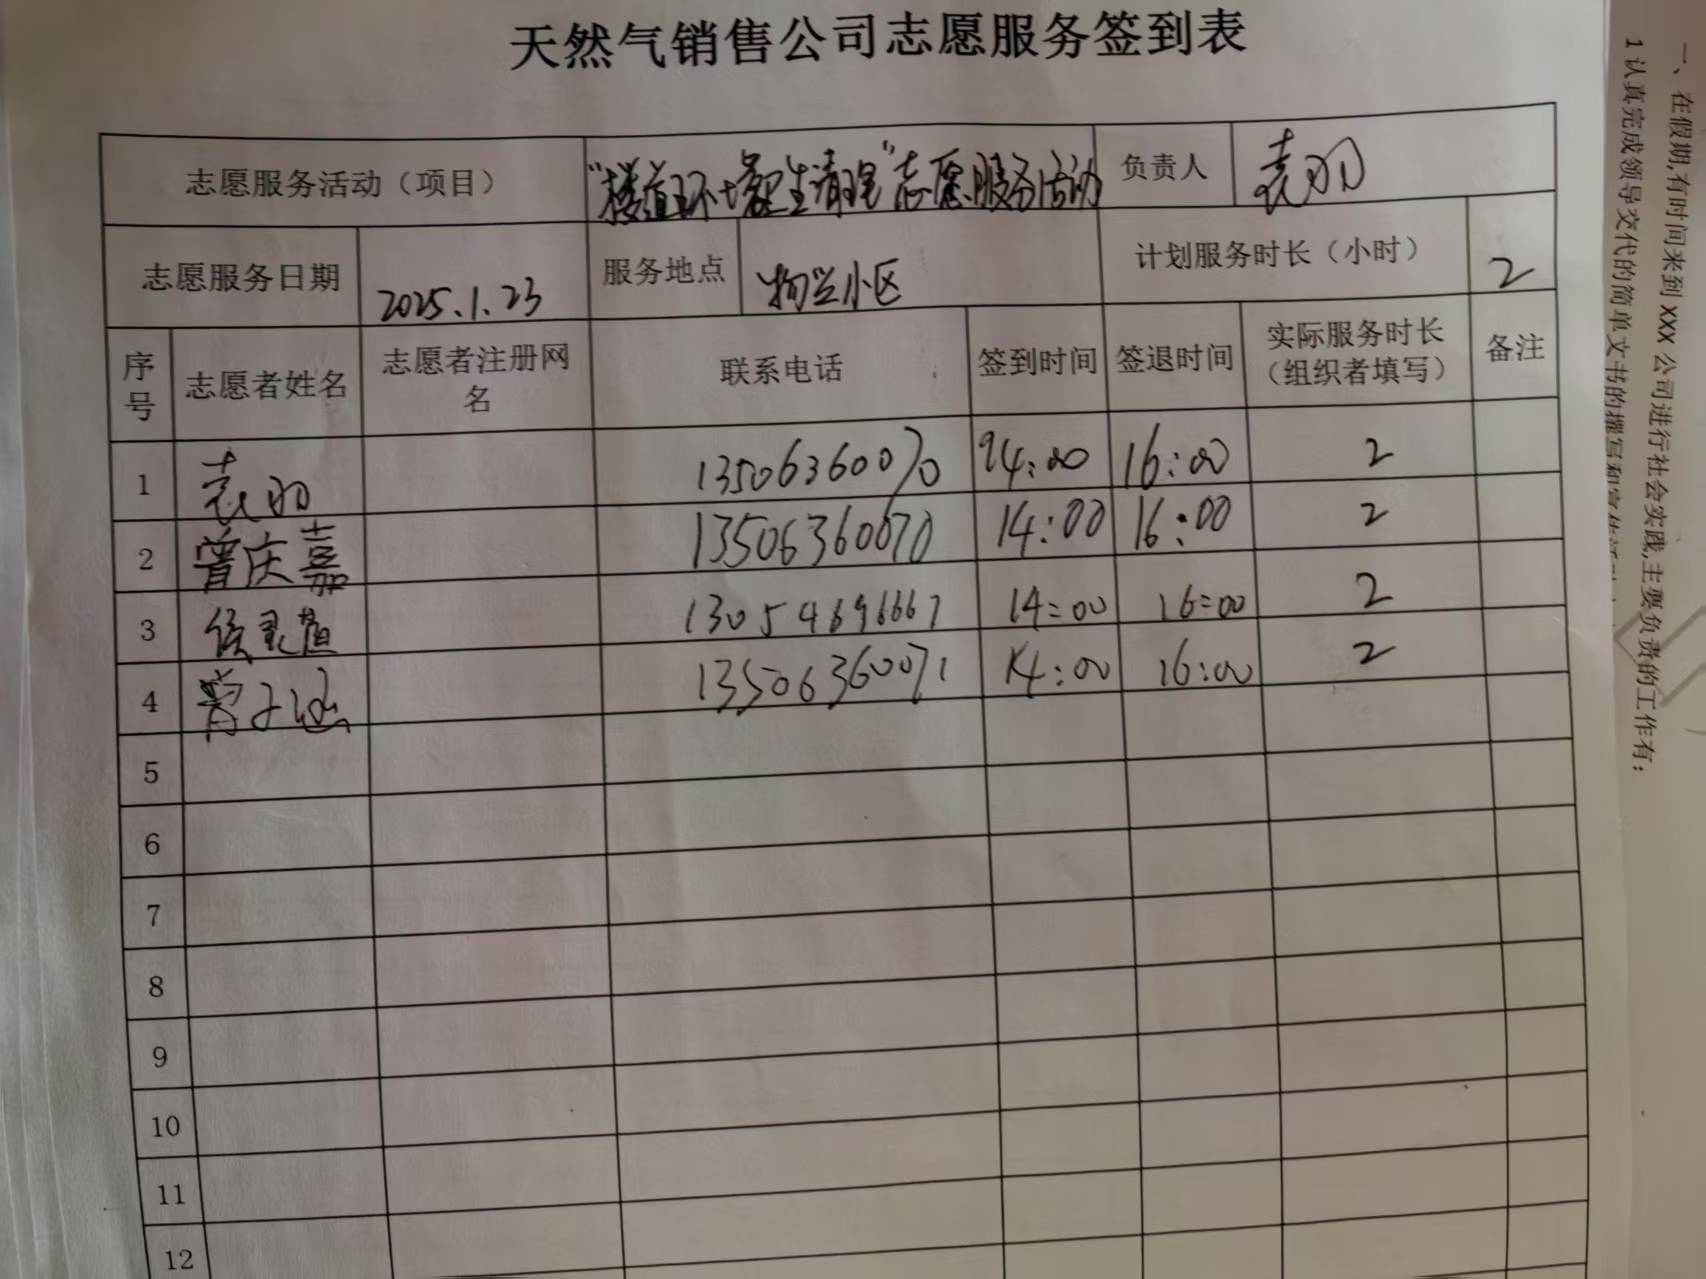 天然气销售公司志愿服务签到表
志愿服务活动（项目） “楼道环境卫生清理”志愿服务活动 负责人 袁羽
志愿服务日期 2025.1.23 服务地点 小区 计划服务时长（小时） 2
序号 志愿者姓名 志愿者注册网名 联系电话 签到时间 签退时间 实际服务时长（组织者填写） 备注
1 袁羽 13506360070 14:00 16:00 2
2 曾庆嘉 13506360070 14:00 16:00 2
3 13054696667 14:00 16:00 2
4 曾子涵 13506360071 14:00 16:00 2
5
6
7
8
9
10
11
12
一、在假期,有时间来到 XXX 公司进行社会实践,主要负责的工作有:
1 认真完成领导交代的简单文书的撰写和